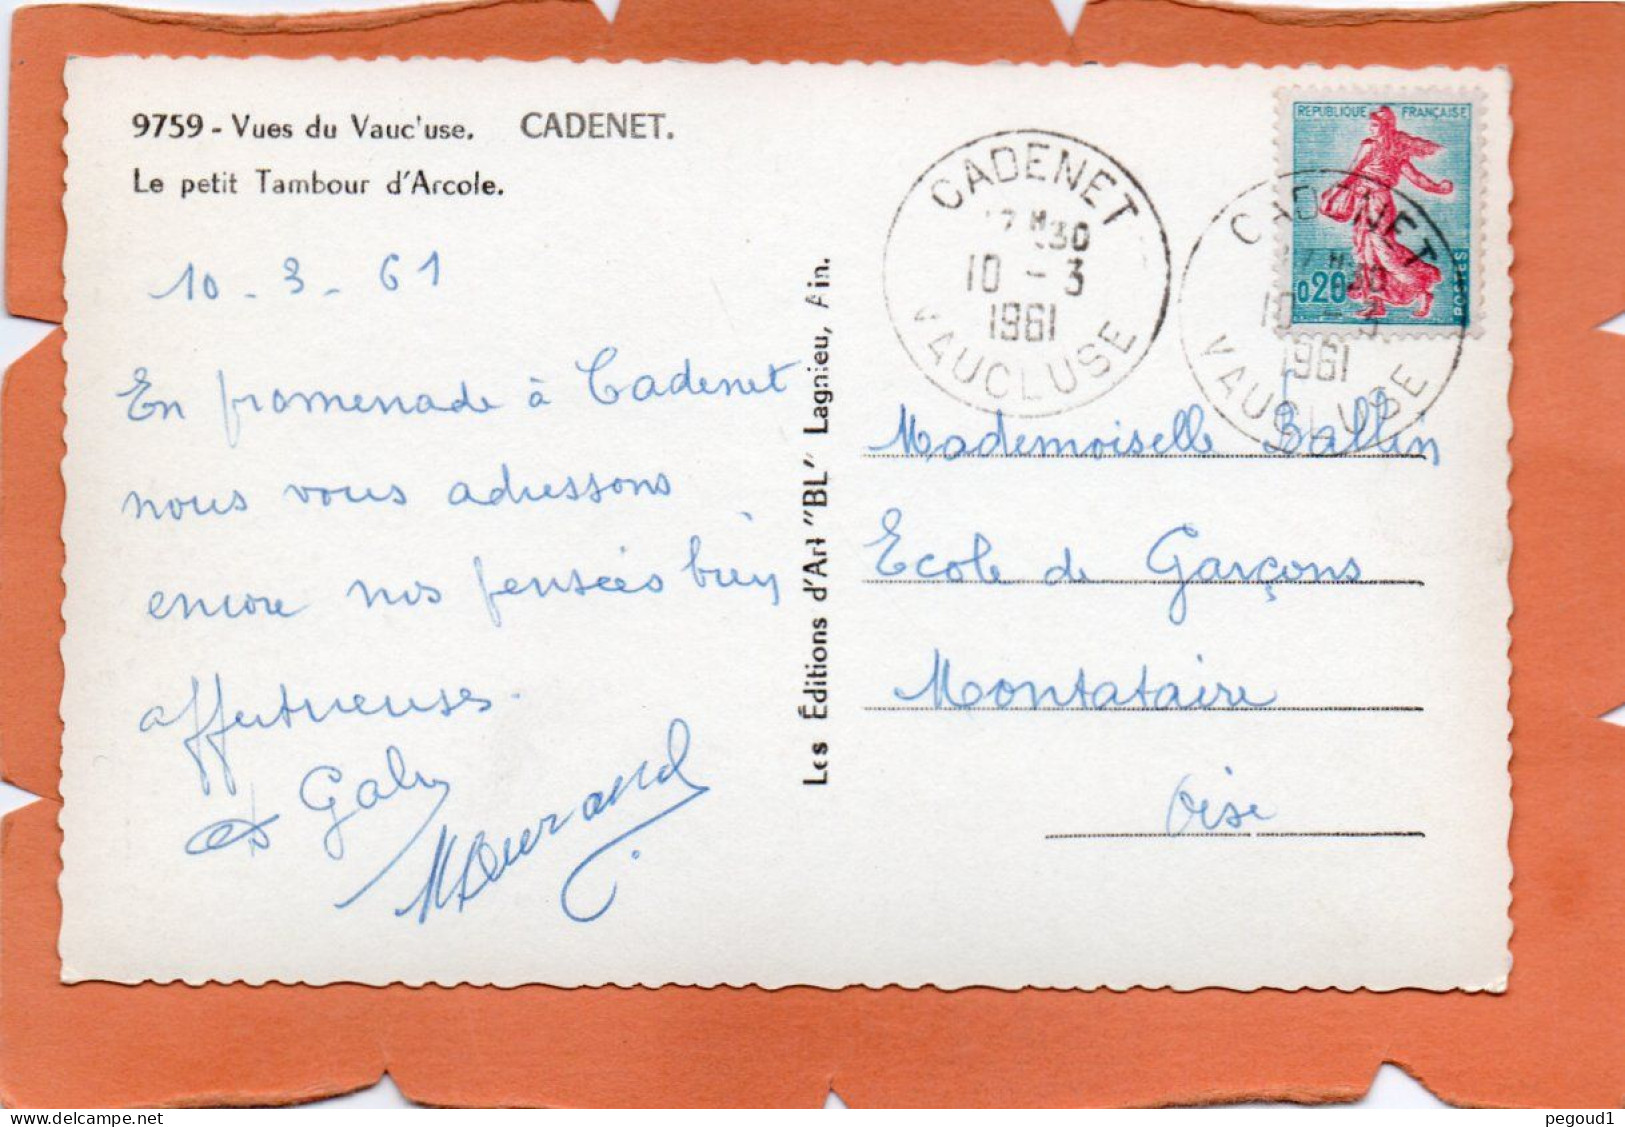 9759 - Vues du Vauc'use. CADENET.
Le petit Tambour d'Arcole.
10 - 3 - 61
En promenade à Cadenet
nous vous adressons
encore nos pensées bien
affectueuses.
Gaby
MDurand
Les Éditions d'Art "BL" Lagnieu, Ain.
CADENET
17 H30
10 - 3
1961
VAUCLUSE
REPUBLIQUE FRANÇAISE
0,20
POSTES
CADENET
17 H30
10 - 3
1961
VAUCLUSE
Mademoiselle Ballin
Ecole de Garçons
Montataire
Oise
delcampe.net
pegoud1